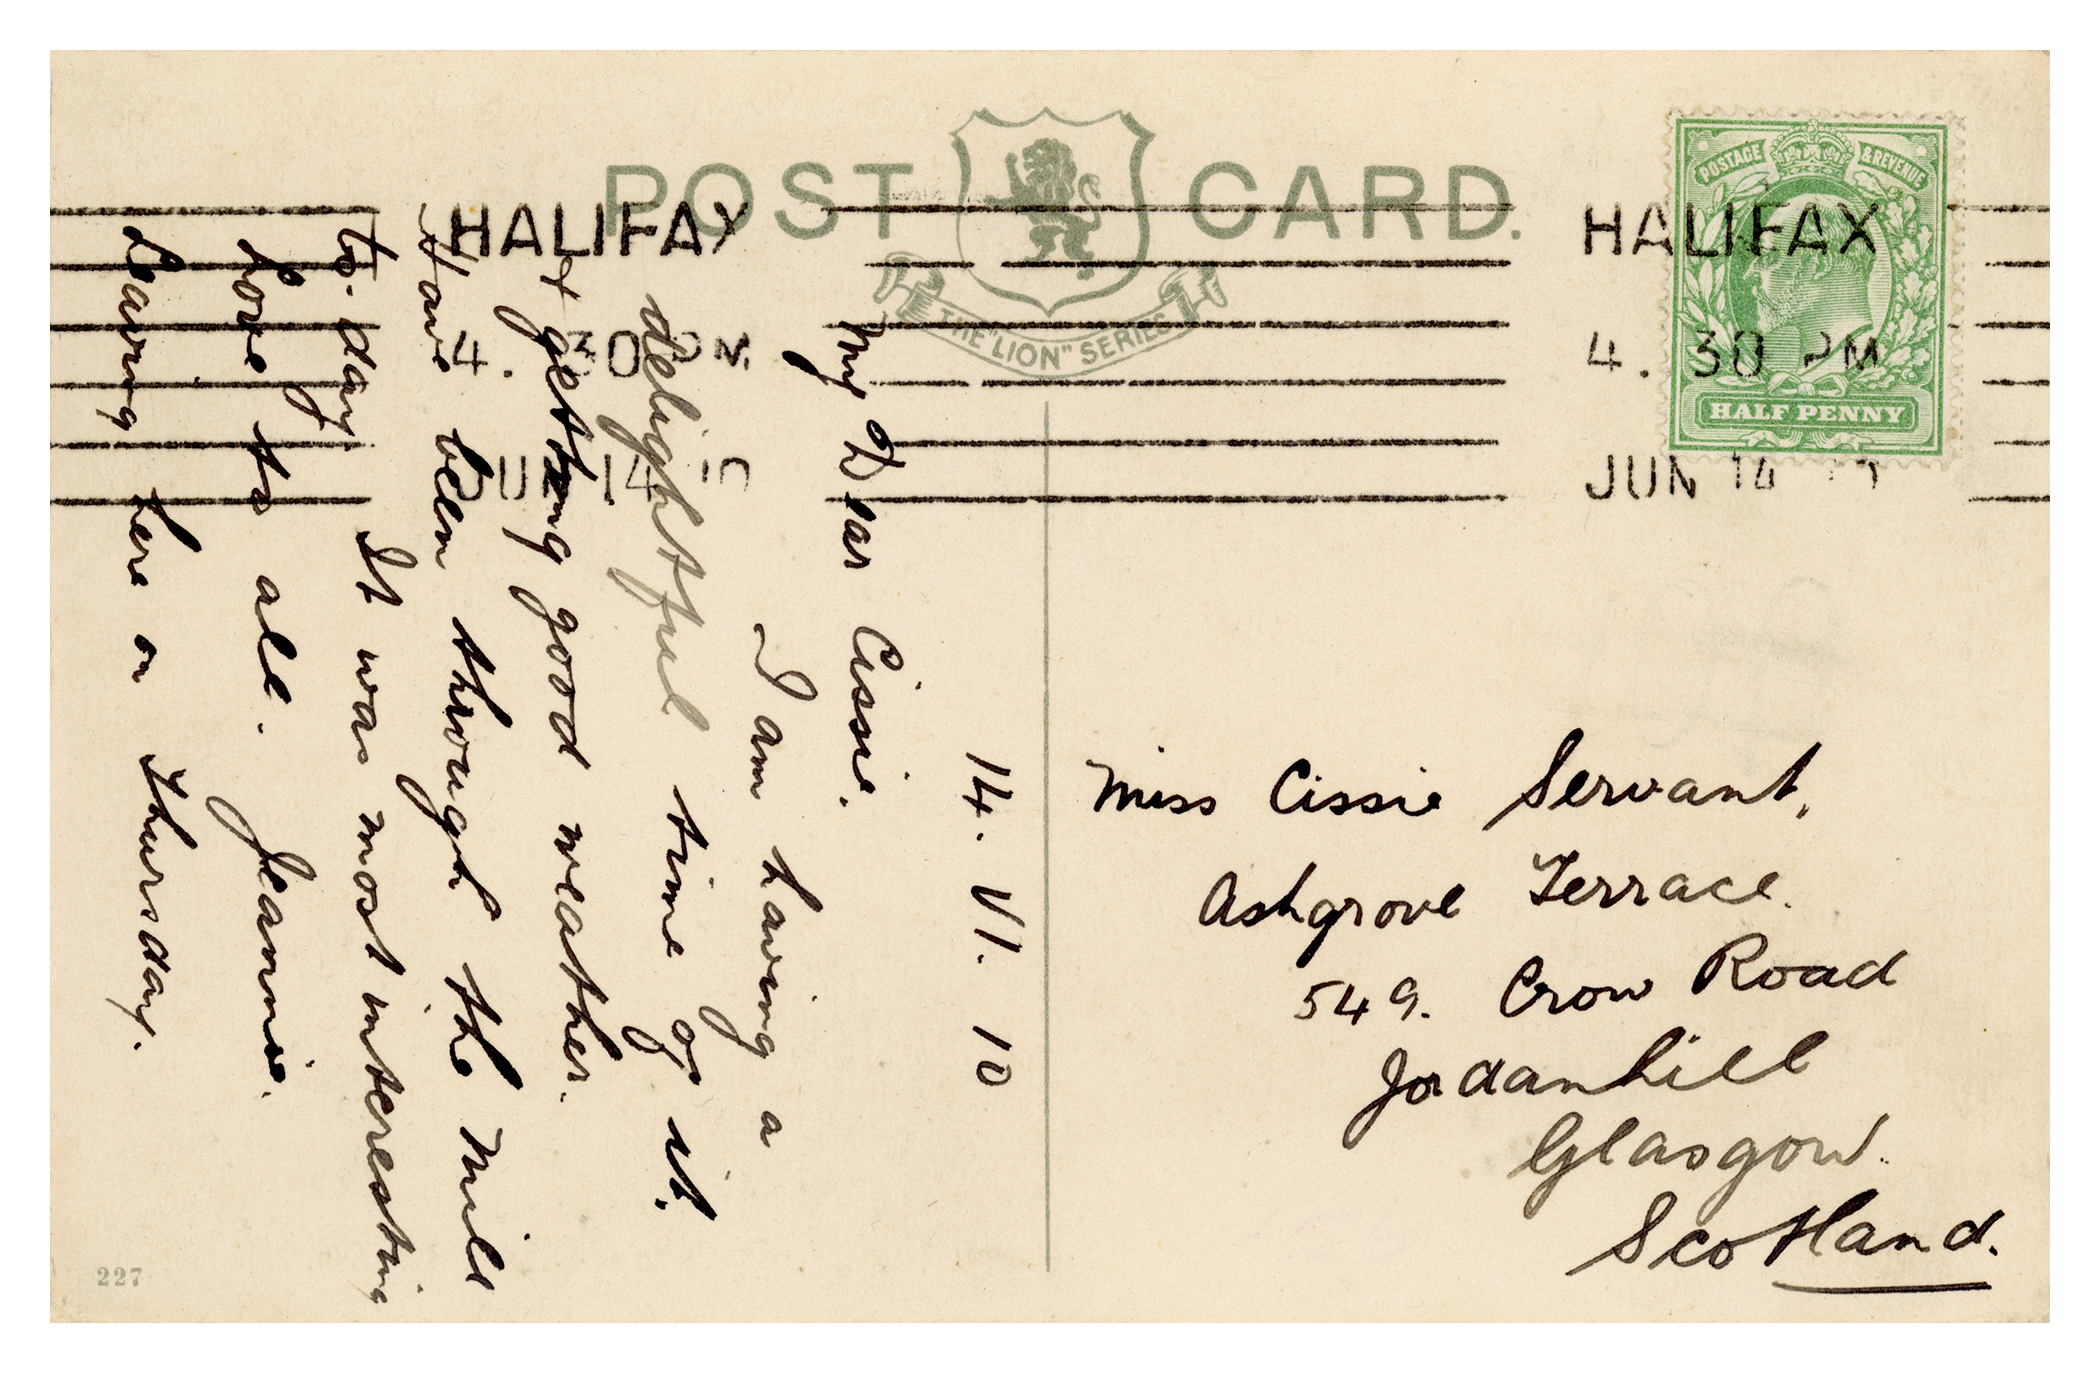 POST CARD.
THE "LION" SERIES
POSTAGE & REVENUE
HALF PENNY
HALIFAX
4. 30 PM
JUN 14 10
HALIFAX
4. 30 PM
JUN 14
14. VI. 10
My Dear Cissie.
I am having a
delightful time of it.
& getting good weather.
Have been through the Mill
to-day. It was most interesting
Love to all. Jeannie.
Leaving here on Thursday.
Miss Cissie Servant,
Ashgrove Terrace.
549. Crow Road
Jordanhill
Glasgow.
Scotland.
227